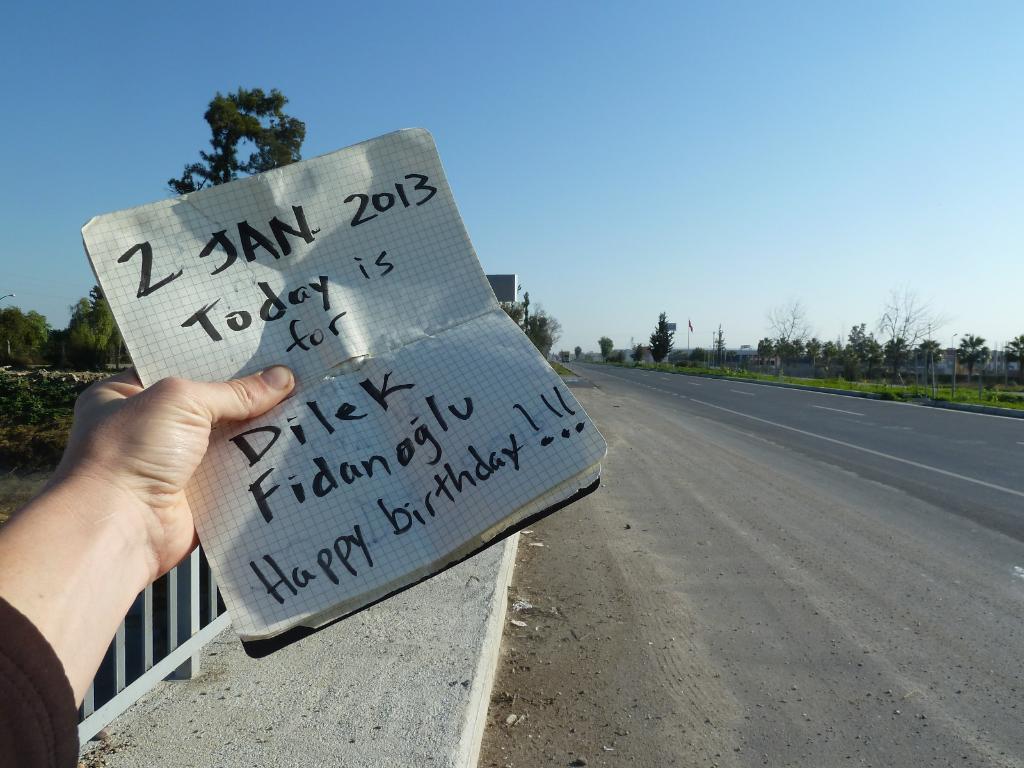 2 JAN. 2013
Today is
for
Dilek
Fidanoğlu
Happy birthday!!!